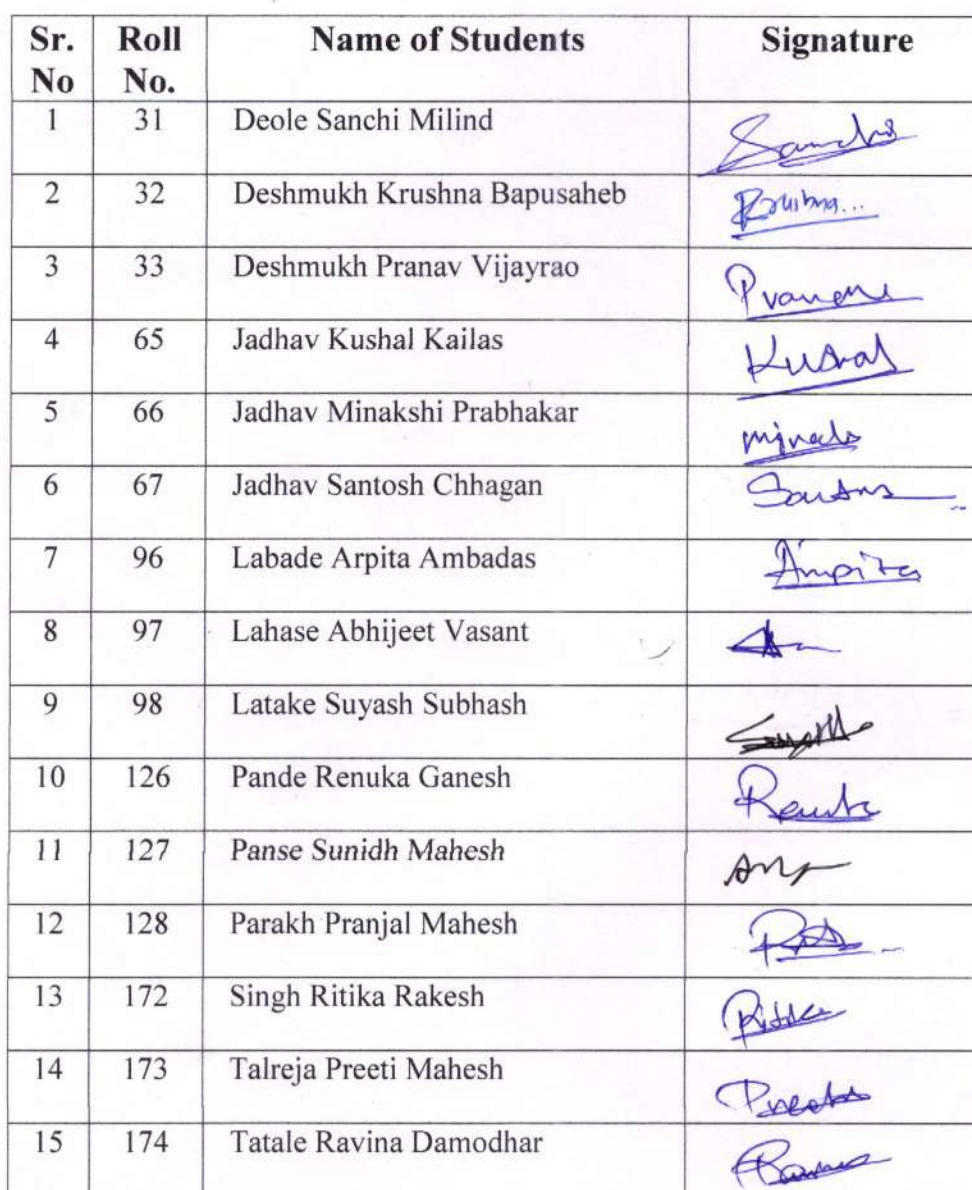 Sr. No Roll No. Name of Students Signature
1 31 Deole Sanchi Milind Sanchi
2 32 Deshmukh Krushna Bapusaheb Krushna...
3 33 Deshmukh Pranav Vijayrao Pranav
4 65 Jadhav Kushal Kailas Kushal
5 66 Jadhav Minakshi Prabhakar
6 67 Jadhav Santosh Chhagan
7 96 Labade Arpita Ambadas Arpita
8 97 Lahase Abhijeet Vasant
9 98 Latake Suyash Subhash
10 126 Pande Renuka Ganesh
11 127 Panse Sunidh Mahesh
12 128 Parakh Pranjal Mahesh
13 172 Singh Ritika Rakesh Ritika
14 173 Talreja Preeti Mahesh Preeti
15 174 Tatale Ravina Damodhar